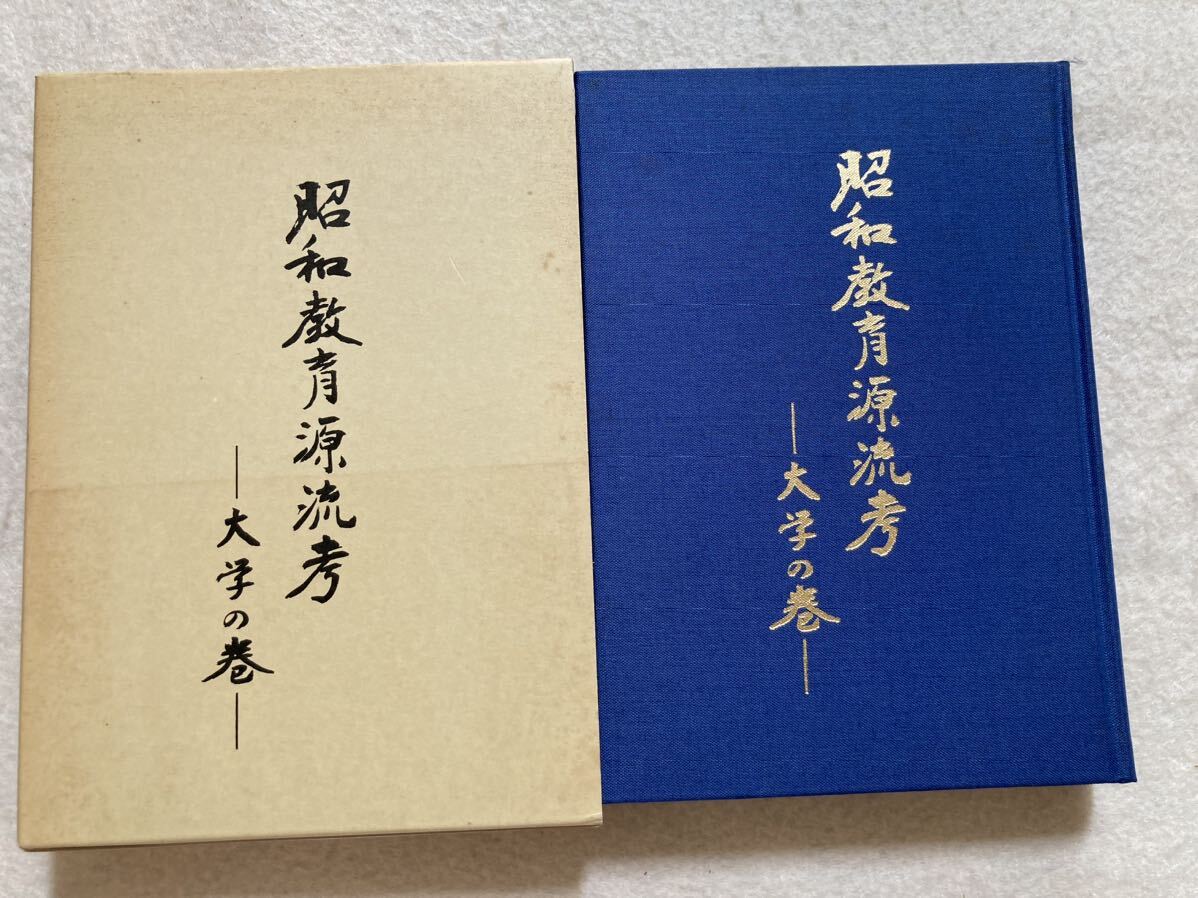 昭和教育源流考
―大学の巻―
昭和教育源流考
―大学の巻―